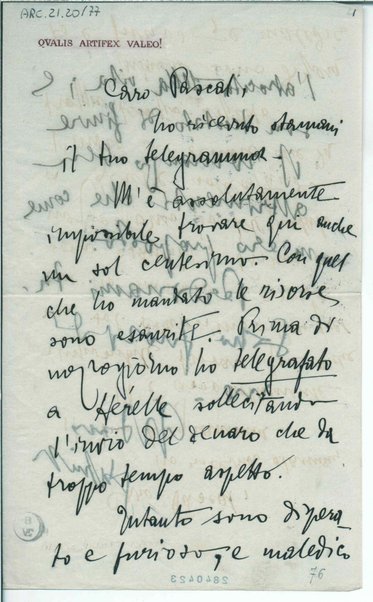 ARC.21.20/77
1
QVALIS ARTIFEX VALEO!
Caro Pascal,
ho ricevuto stamani
il tuo telegramma.
M'è assolutamente
impossibile trovare qui anche
un sol centesimo. Con quel
che ho mandato le risorse
sono esaurite. Prima di
mezzogiorno ho telegrafato
a Hérelle sollecitando
l'invio del denaro che da
troppo tempo aspetto.
Intanto sono dispera-
to e furioso, e maledico
76